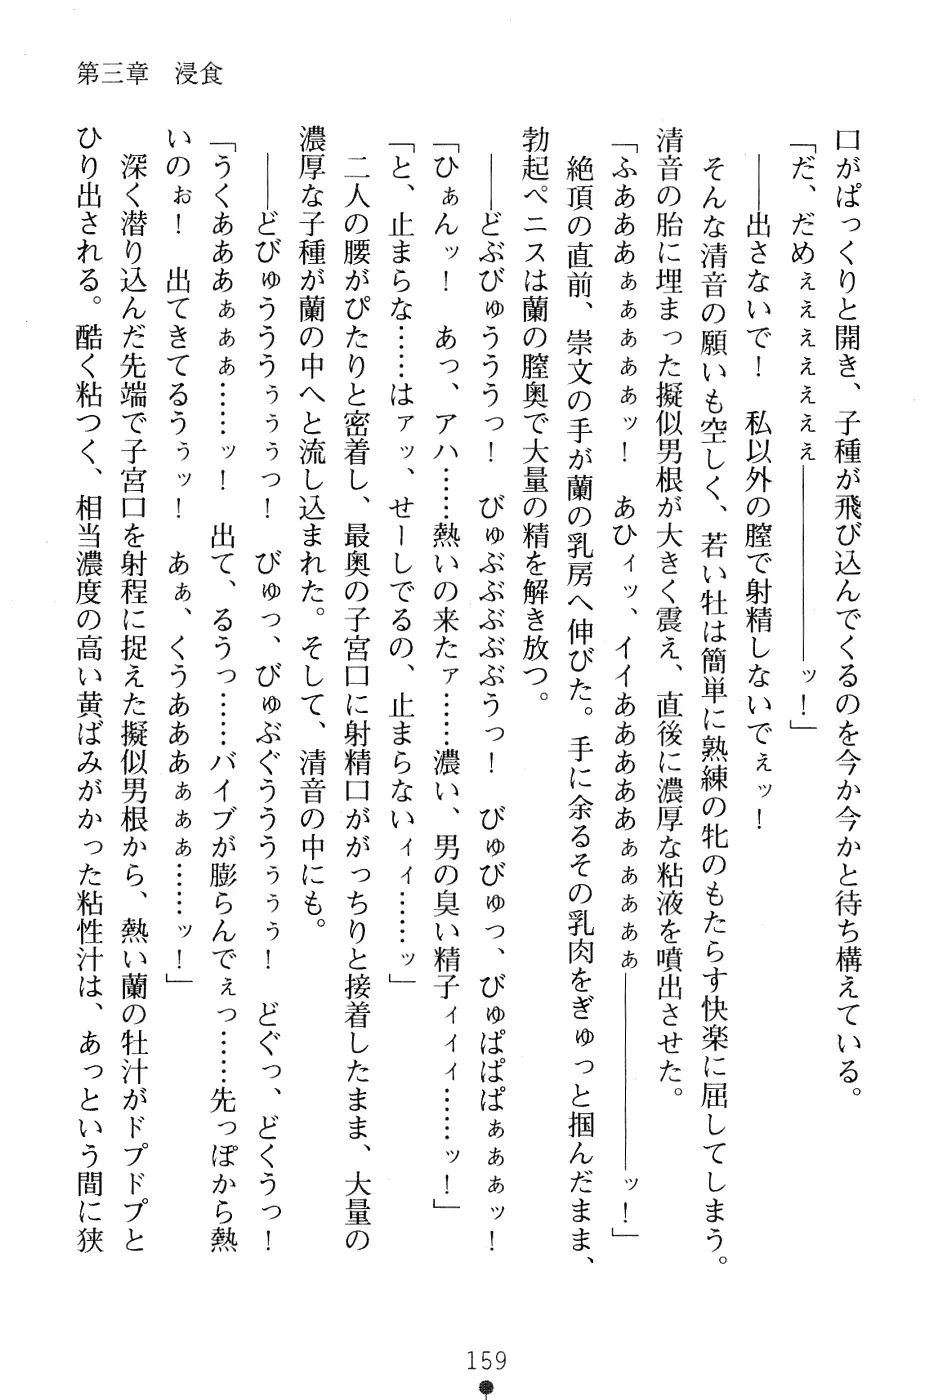 第三章　浸食
口がぱっくりと開き、子種が飛び込んでくるのを今か今かと待ち構えている。
「だ、だめぇぇぇぇぇぇ――――――――ッ！」
――出さないで！　私以外の膣で射精しないでぇッ！
そんな清音の願いも空しく、若い牡は簡単に熟練の牝のもたらす快楽に屈してしまう。
清音の胎に埋まった擬似男根が大きく震え、直後に濃厚な粘液を噴出させた。
「ふあああぁぁぁぁぁッ！　あひィッ、イイあああああぁぁぁぁぁ――――――――ッ！」
絶頂の直前、崇文の手が蘭の乳房へ伸びた。手に余るその乳肉をぎゅっと掴んだまま、
勃起ペニスは蘭の膣奥で大量の精を解き放つ。
――どぶびゅううっ！　びゅぶぶぶぶうっ！　びゅびゅっ、びゅぱぱぱぁぁぁッ！
「ひぁんッ！　あっ、アハ……熱いの来たァ……濃い、男の臭い精子ィィィ……ッ！」
「と、止まらな……はァッ、せーしでるの、止まらないィィ……ッ」
二人の腰がぴたりと密着し、最奥の子宮口に射精口ががっちりと接着したまま、大量の
濃厚な子種が蘭の中へと流し込まれた。そして、清音の中にも。
――どびゅうううぅぅぅっ！　びゅっ、びゅぶぐうううぅぅぅ！　どぐっ、どくうっ！
「うくあああぁぁぁ……ッ！　出て、るうっ……バイブが膨らんでぇっ……先っぽから熱
いのぉ！　出てきてるうぅッ！　あぁ、くうあああぁぁぁ……ッ！」
深く潜り込んだ先端で子宮口を射程に捉えた擬似男根から、熱い蘭の牡汁がドプドプと
ひり出される。酷く粘つく、相当濃度の高い黄ばみがかった粘性汁は、あっという間に狭
159